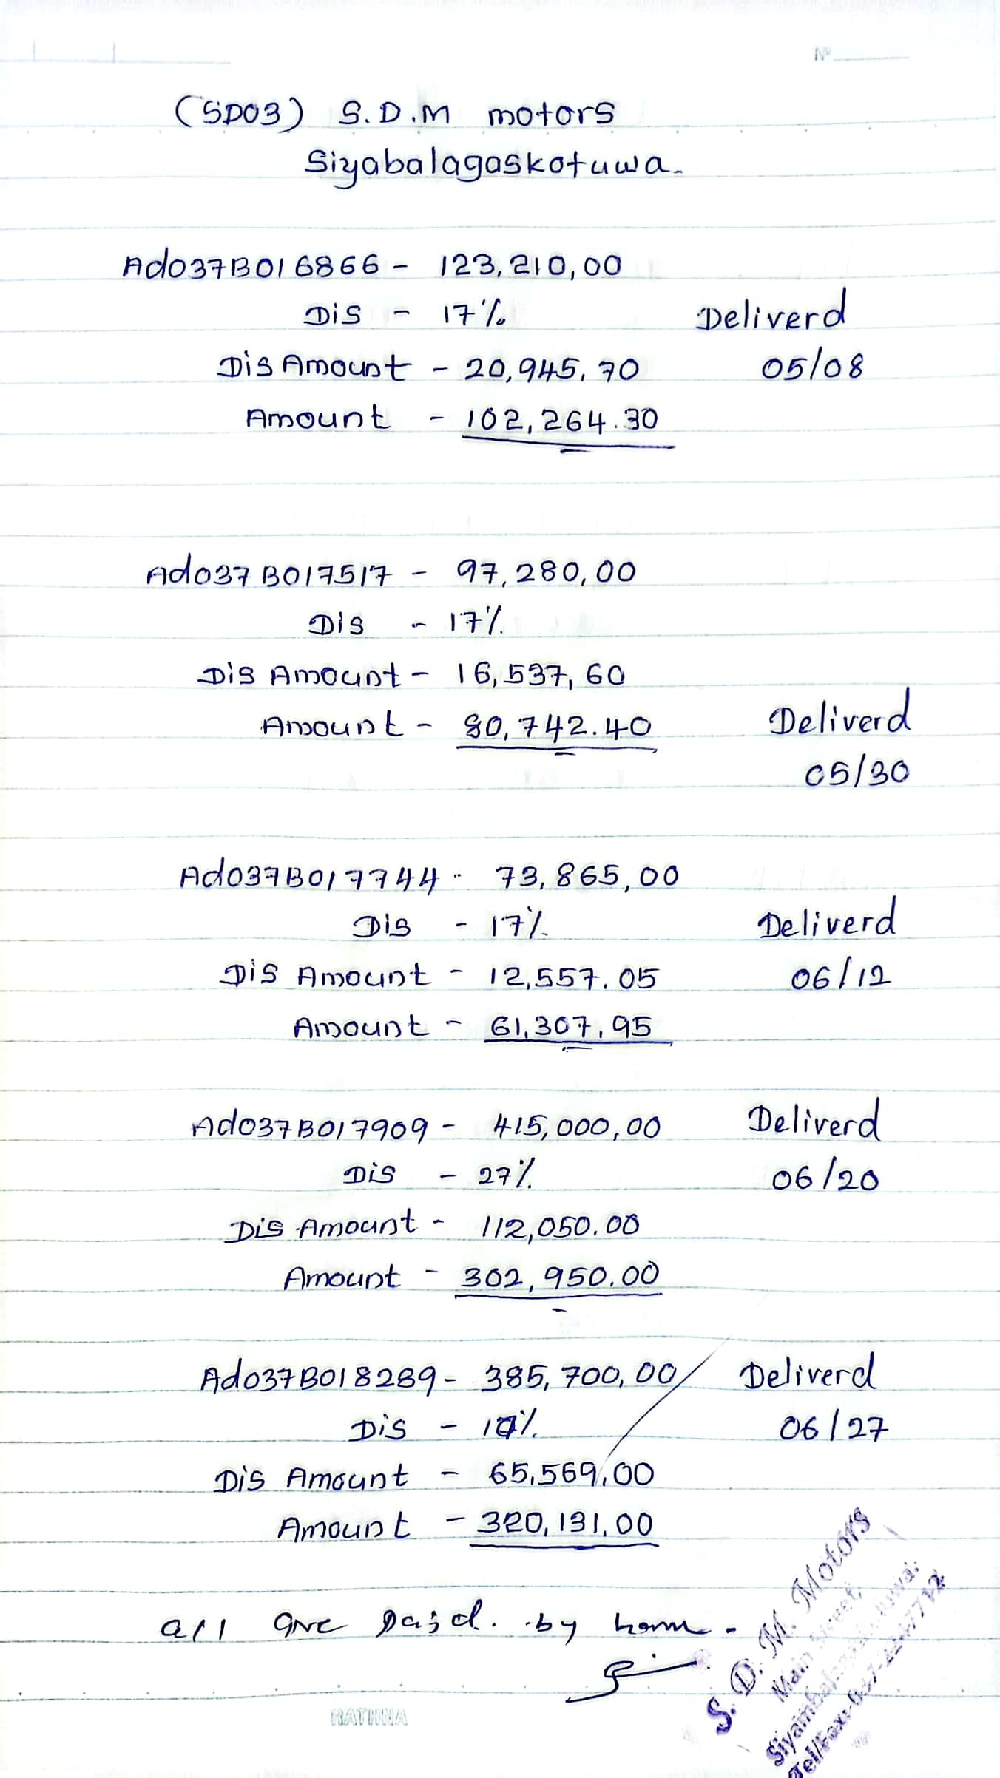 Nº
(SD03) S.D.M motors
Siyabalagaskotuwa.
Ado37B016866 - 123,210,00
Dis - 17%
Deliverd
Dis Amount - 20,945,70
05/08
Amount - 102,264.30
Ado37B017517 - 97,280,00
Dis - 17%
Dis Amount - 16,537,60
Amount - 80,742.40
Deliverd
05/30
Ado37B017744 - 73,865,00
Dis - 17%
Deliverd
Dis Amount - 12,557.05
06/12
Amount - 61,307,95
Ado37B017909 - 415,000,00
Deliverd
Dis - 27%
06/20
Dis Amount - 112,050.00
Amount - 302,950.00
Ado37B018289 - 385,700,00
Deliverd
Dis - 17%
06/27
Dis Amount - 65,569,00
Amount - 320,131,00
all are paid. by
S. D. M. Motors
Main Street,
Tel/Fax:
RATHNA